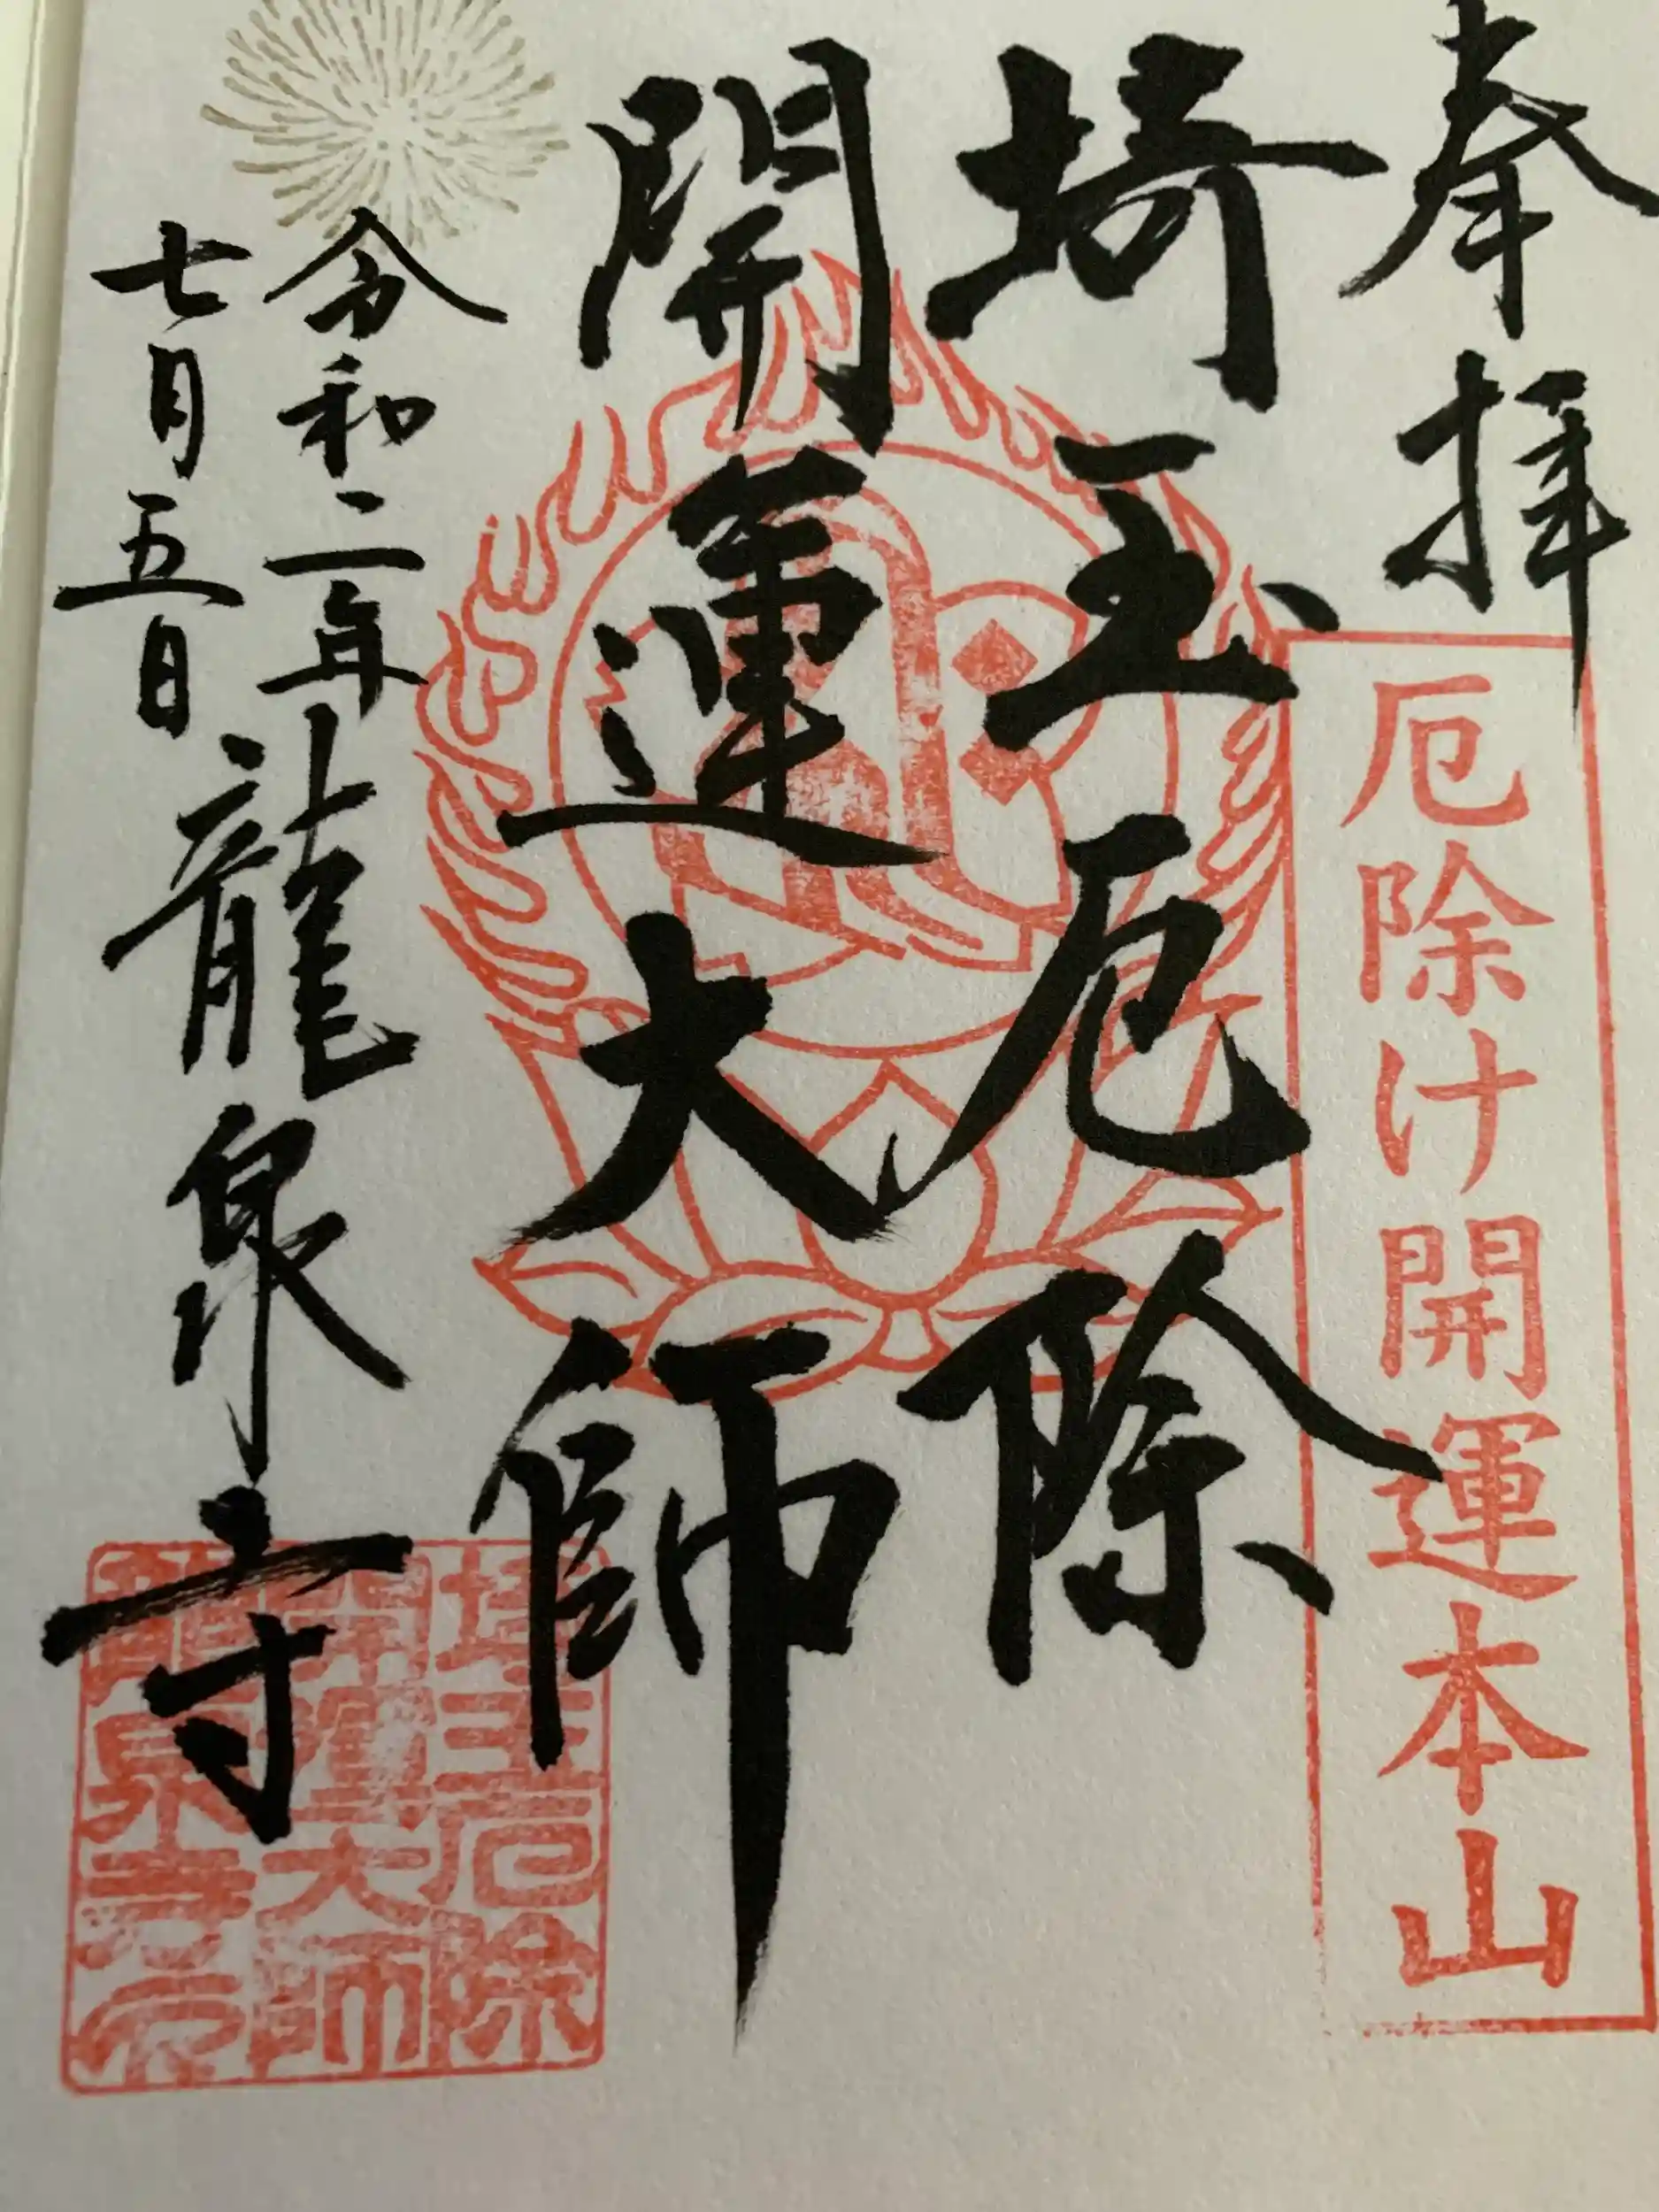 奉拝
厄除け開運本山
埼玉厄除
開運大師
令和二年
七月五日
龍泉寺
埼玉厄除
開運大師
龍泉寺